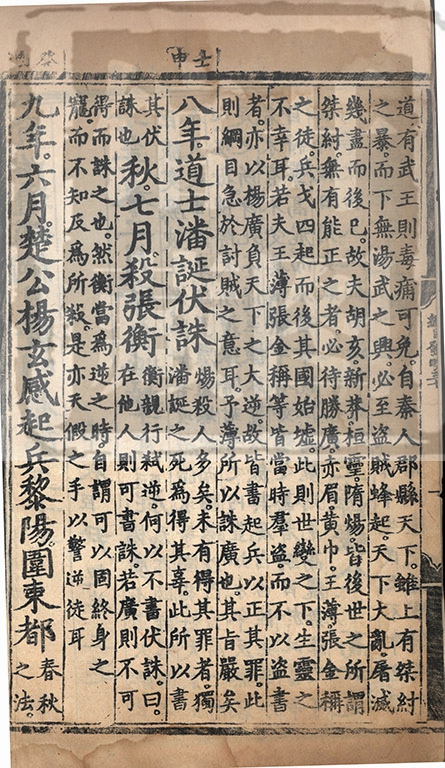 壬申
道有武王則毒痡可免自秦人郡縣天下雖上有桀紂
之暴而下無湯武之興必至盜賊蜂起天下大亂屠滅
幾盡而後已故夫胡亥新莽桓靈隋煬皆後世之所謂
桀紂無有能正之者必待勝廣赤眉黃巾王薄張金稱
之徒兵戈四起而後其國始墟此則世變之下生靈之
不幸耳若夫王薄張金稱等皆當時羣盜而不以盜書
者亦以楊廣負天下之大逆故皆書起兵以正其罪此
則綱目急於討賊之意耳予薄所以誅廣也其旨嚴矣
八年。道士潘誕伏誅煬殺人多矣未有得其罪者獨
潘誕之死爲得其辜此所以書
其伏
誅也秋。七月。殺張衡衡親行弒逆何以不書伏誅曰
在他人則可書誅若廣則不可
得而誅之也然衡當爲逆之時自謂可以固終身之
寵而不知反爲所殺是亦天假之手以警逆徒耳
九年。六月。楚公楊玄感起兵黎陽圍東都春秋
之法